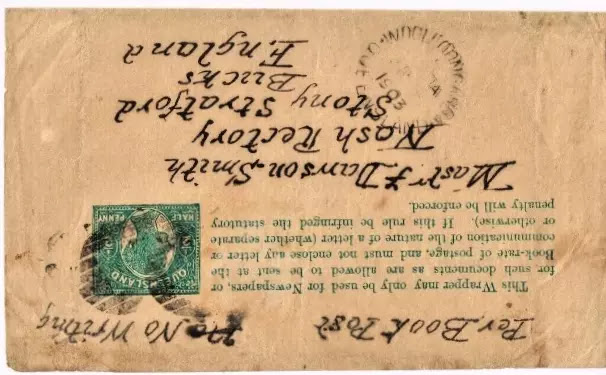 Per Book Post
No Writing
This Wrapper may only be used for Newspapers, or
for such documents as are allowed to be sent at the
Book-rate of postage, and must not enclose any letter or
communication of the nature of a letter (whether separate
or otherwise). If this rule be infringed the statutory
penalty will be enforced.
QUEENSLAND
HALF
PENNY
Mastr F. Dawson Smith
Nash Rectory
Stony Stratford
Bucks
England
1903